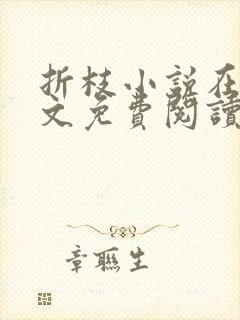 折枝小说在
文免費閱讀
章聯生